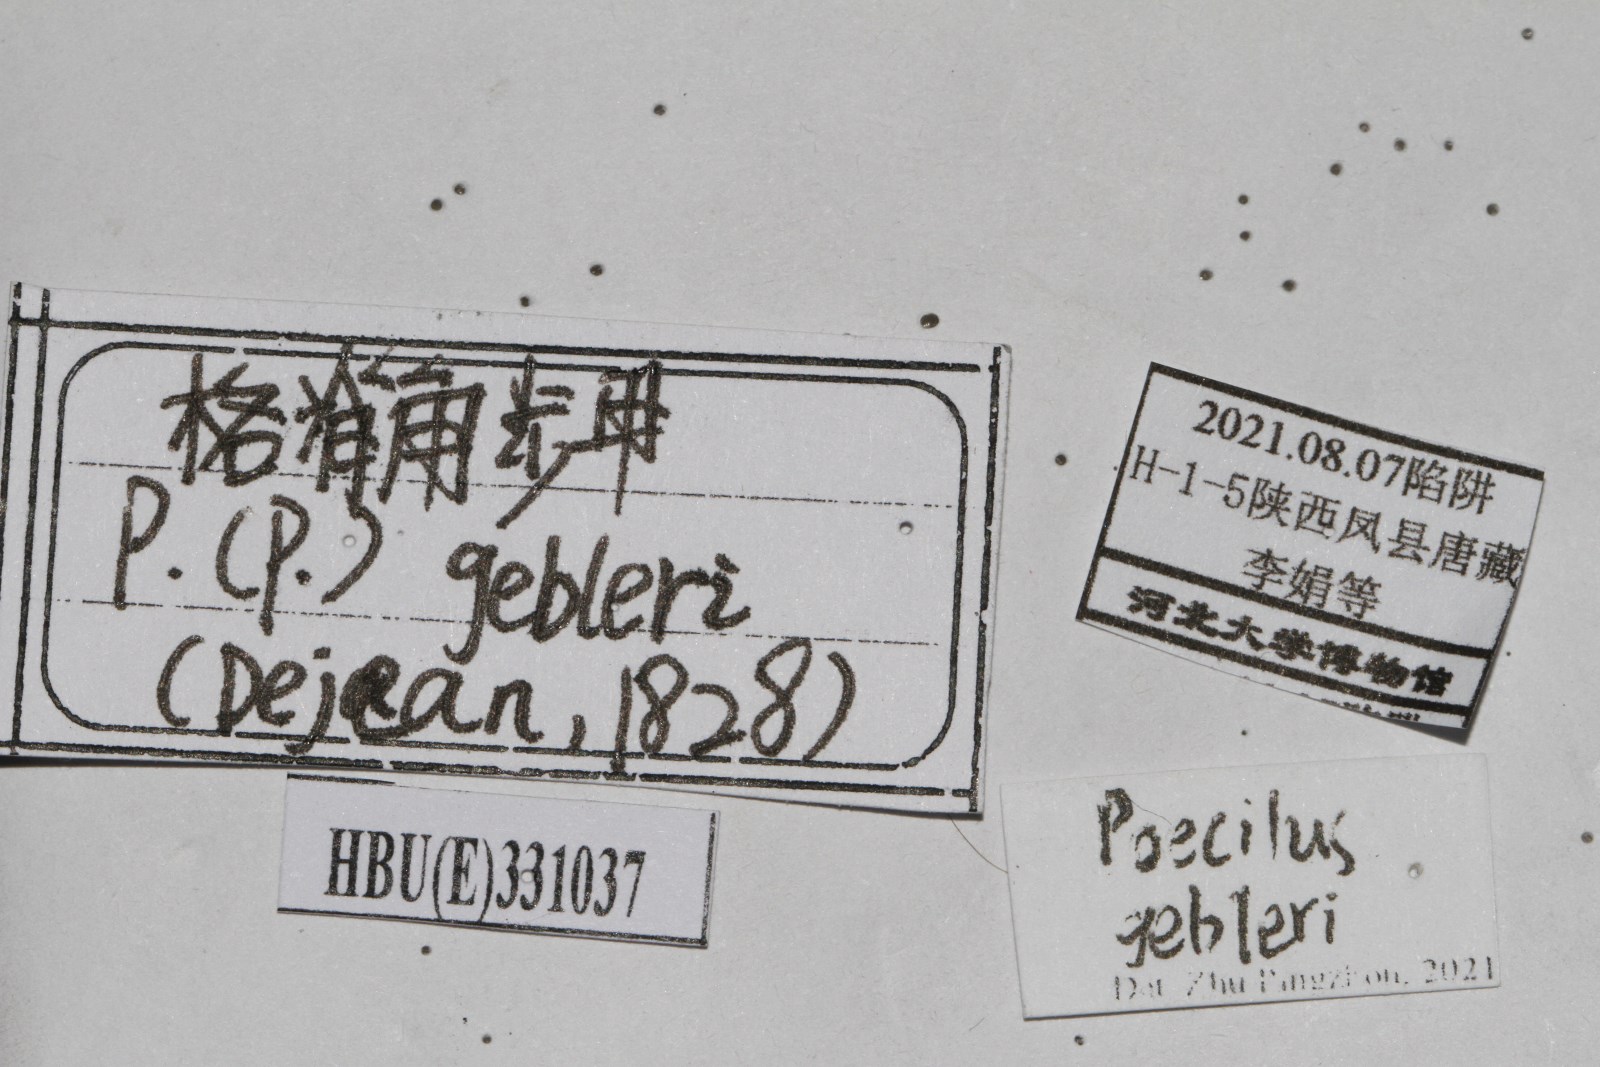 格脊角步甲
P. (P.) gebleri
(Dejean, 1828)
HBU(E)331037
2021.08.07陷阱
H-1-5陕西凤县唐藏
李娟等
河北大学博物馆
Poecilus
gebleri
Det. Zhu Pingzhou, 2021